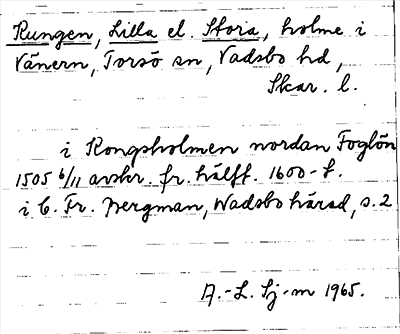 Kungen, Lilla el. Stora, holme i
Vänern, Torsö sn, Vadsbo hd,
Skar. l.
i Kongsholmen nordan Foglön
1505 6/11 avskr. fr. hälft. 1600-t.
i C. Fr. Bergman, Wadsbo härad, s. 2
A.-L. Sj-m 1965.